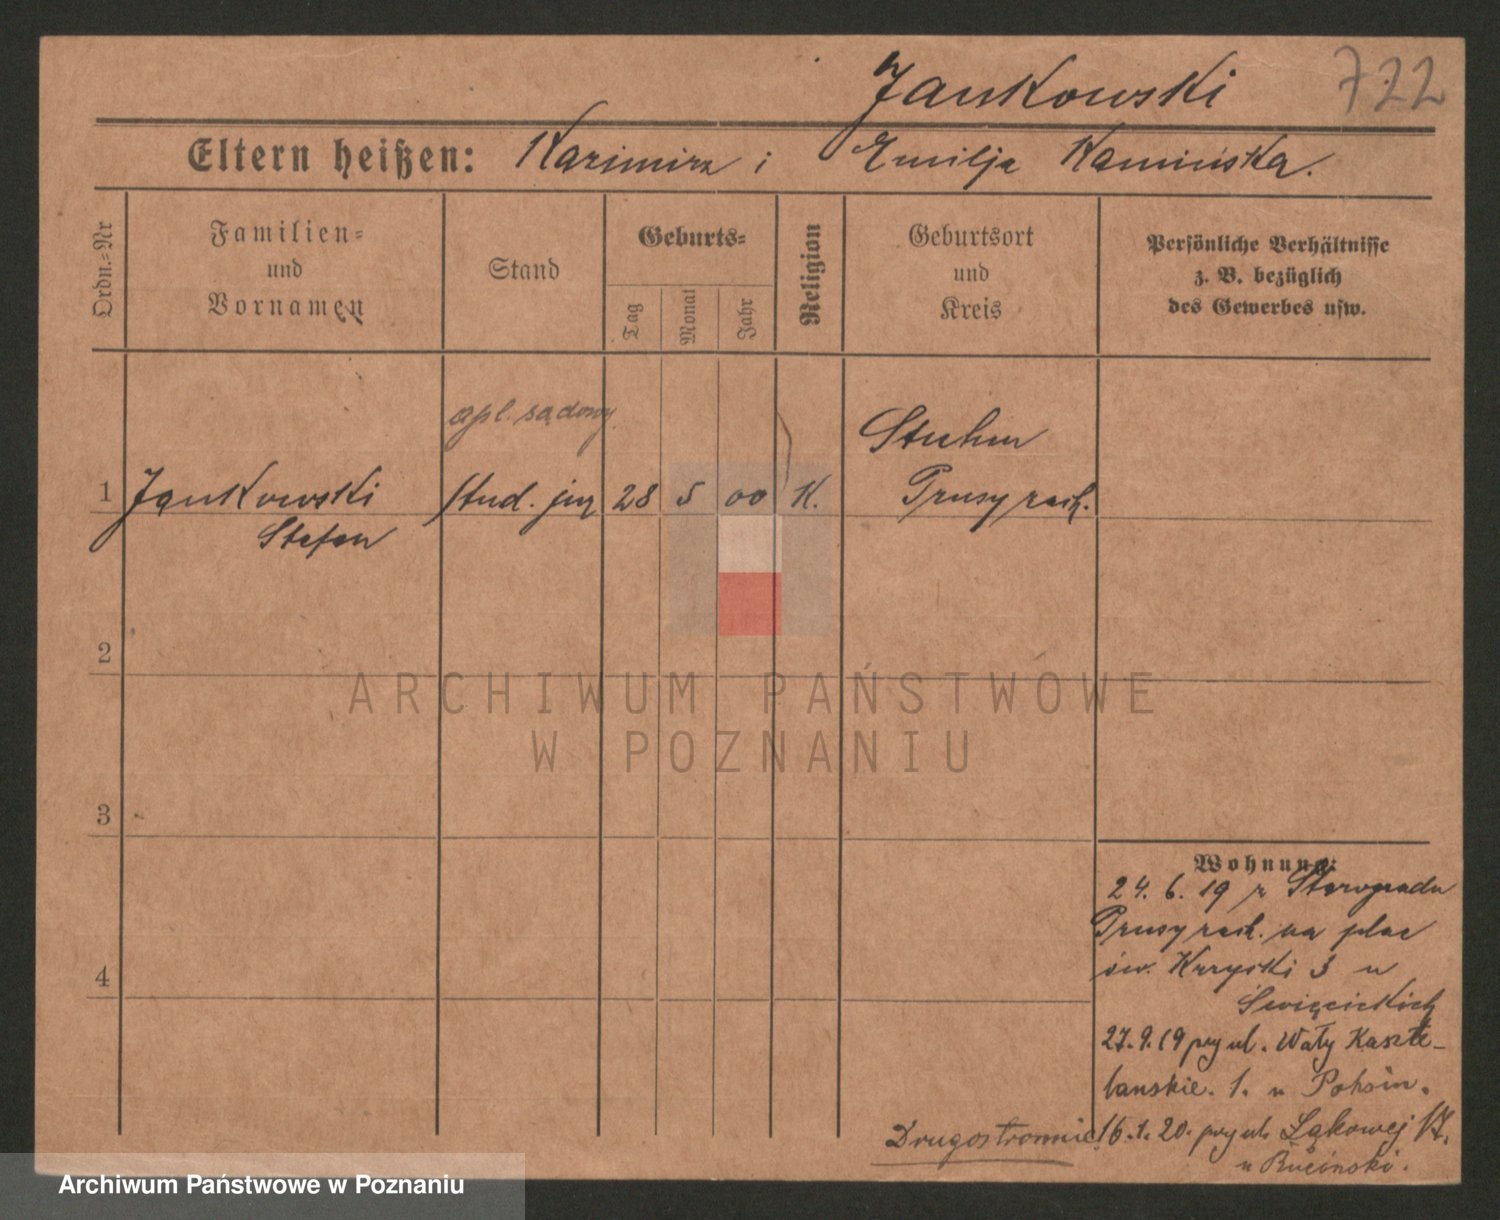 Jankowski 722
Eltern heißen: Kazimirz i Emilja Kamińska.
Ordn.=Nr
Familien=
und
Vornamen
Stand
Geburts=
Tag
Monat
Jahr
Religion
Geburtsort
und
Kreis
Persönliche Verhältnisse
z. B. bezüglich
des Gewerbes usw.
apl. sądowy
1 Jankowski stud. jur 28 5 00 K.
Stefan
Stuhm
Prusy zach.
2
3
4
Wohnung:
24. 6. 19 z Starogradu
Prusy zach. na plac
św. Krzyski 3 u
Święcickich
27.9.19 przy ul. Wały Kaszte-
lańskie. 1. u
Drugostronnie! 16.1.20. przy ul. Łąkowej 17.
u Ruciński.
ARCHIWUM PAŃSTWOWE
W POZNANIU
Archiwum Państwowe w Poznaniu